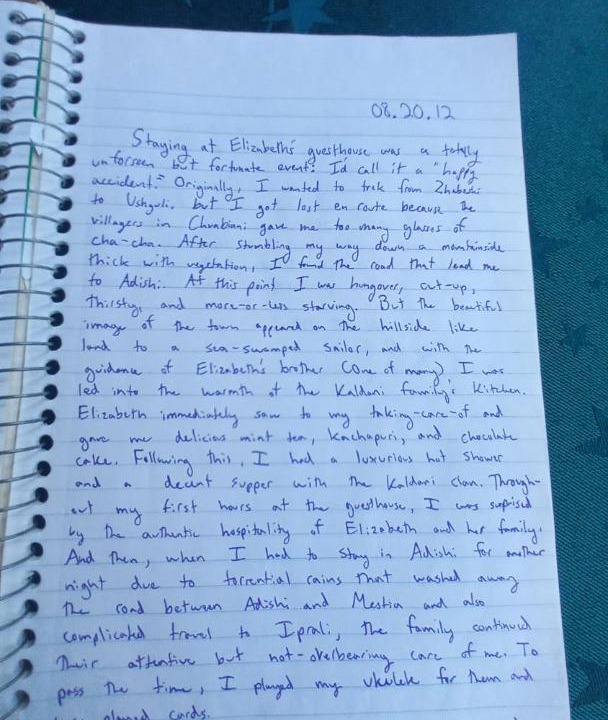 08.20.12
Staying at Elizabeth's guesthouse was a totally
unforseen but fortunate event: I'd call it a "happy
accident." Originally, I wanted to trek from Zhabeshi
to Ushguli, but I got lost en route because the
villagers in Chvabiani gave me too many glasses of
cha-cha. After stumbling my way down a mountainside
thick with vegetation, I found the road that lead me
to Adishi. At this point I was hungover, cut-up,
thirsty, and more-or-less starving. But the beautiful
image of the town appeared on the hillside like
land to a sea-swamped sailor, and with the
guidance of Elizabeth's brother (one of many) I was
led into the warmth of the Kaldani family's kitchen.
Elizabeth immediately saw to my taking-care-of and
gave me delicious mint tea, kachapuri, and chocolate
cake. Following this, I had a luxurious hot shower
and a decent supper with the Kaldani clan. Through-
out my first hours at the guesthouse, I was suprised
by the authentic hospitality of Elizabeth and her family.
And then, when I had to stay in Adishi for another
night due to torrential rains that washed away
the road between Adishi and Mestia and also
complicated travel to Iprali, the family continued
their attentive but not-overbearing care of me. To
pass the time, I played my ukulele for them and
played cards.